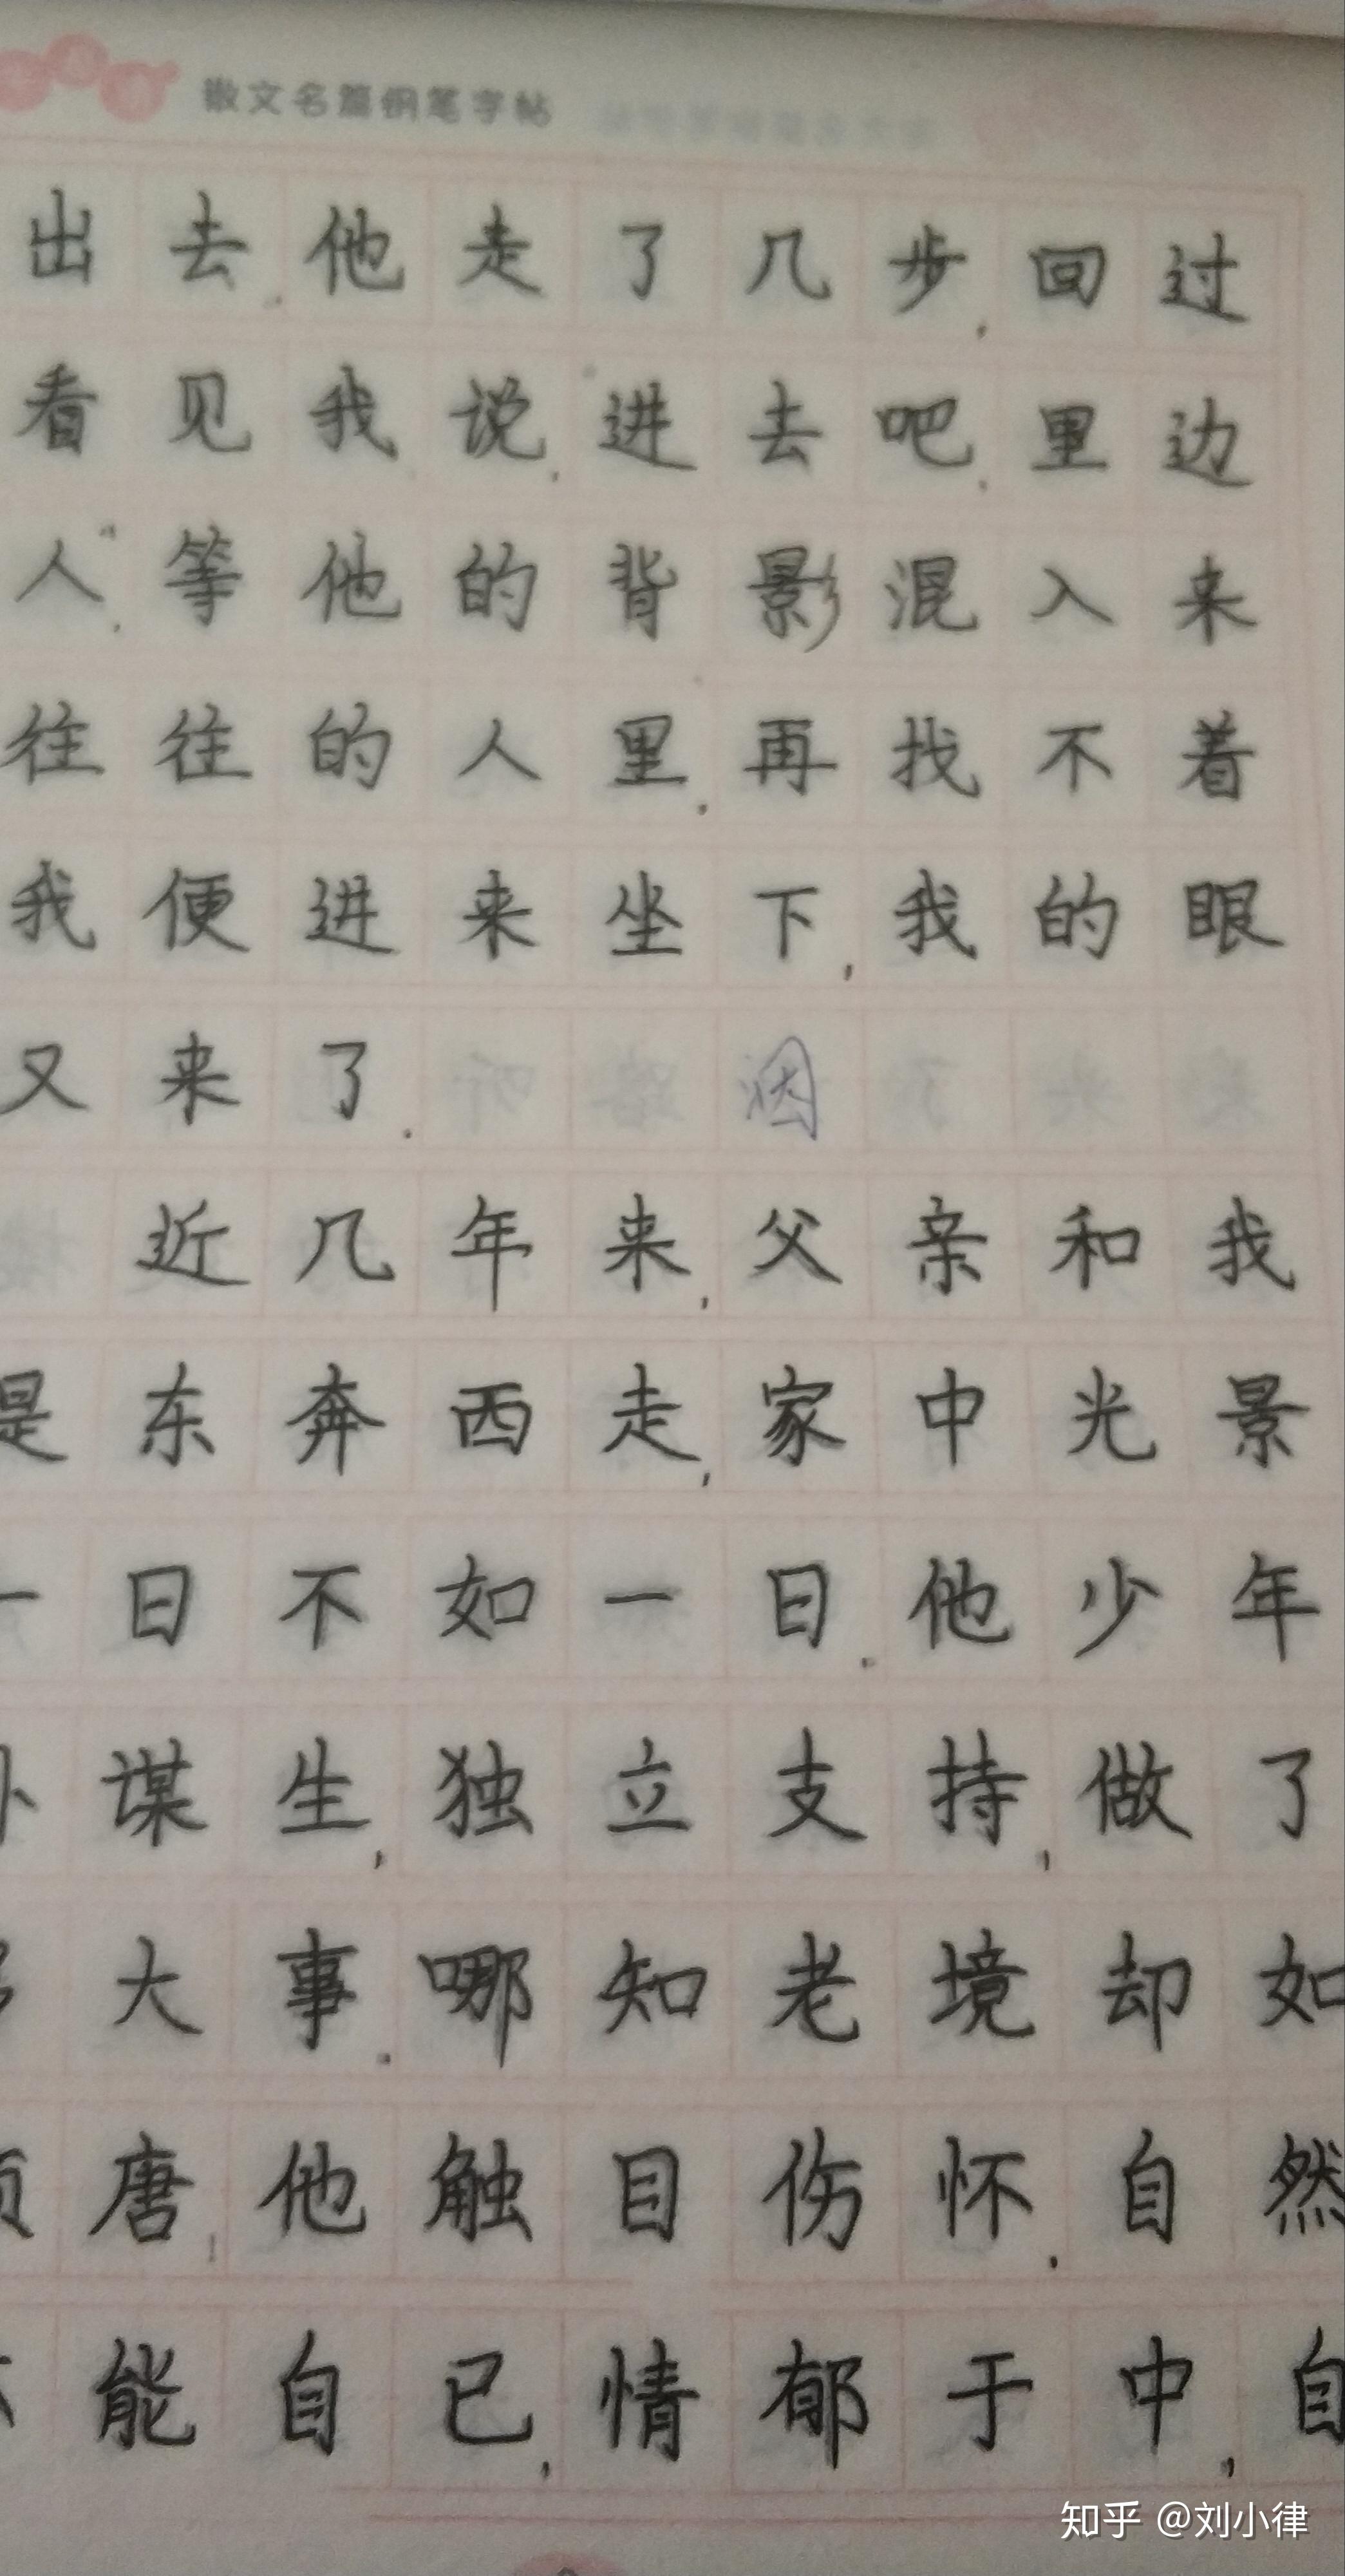 散文名篇钢笔字帖
出去.他走了几步.回过
看见我说.进去吧.里边
人.等他的背影混入来
往往的人里.再找不着
我便进来坐下,我的眼
又来了.因
近几年来,父亲和我
是东奔西走,家中光景
一日不如一日.他少年
外谋生,独立支持,做了
大事.哪知老境却如
唐,他触目伤怀.自然
能自已,情郁于中,自
知乎 @刘小律